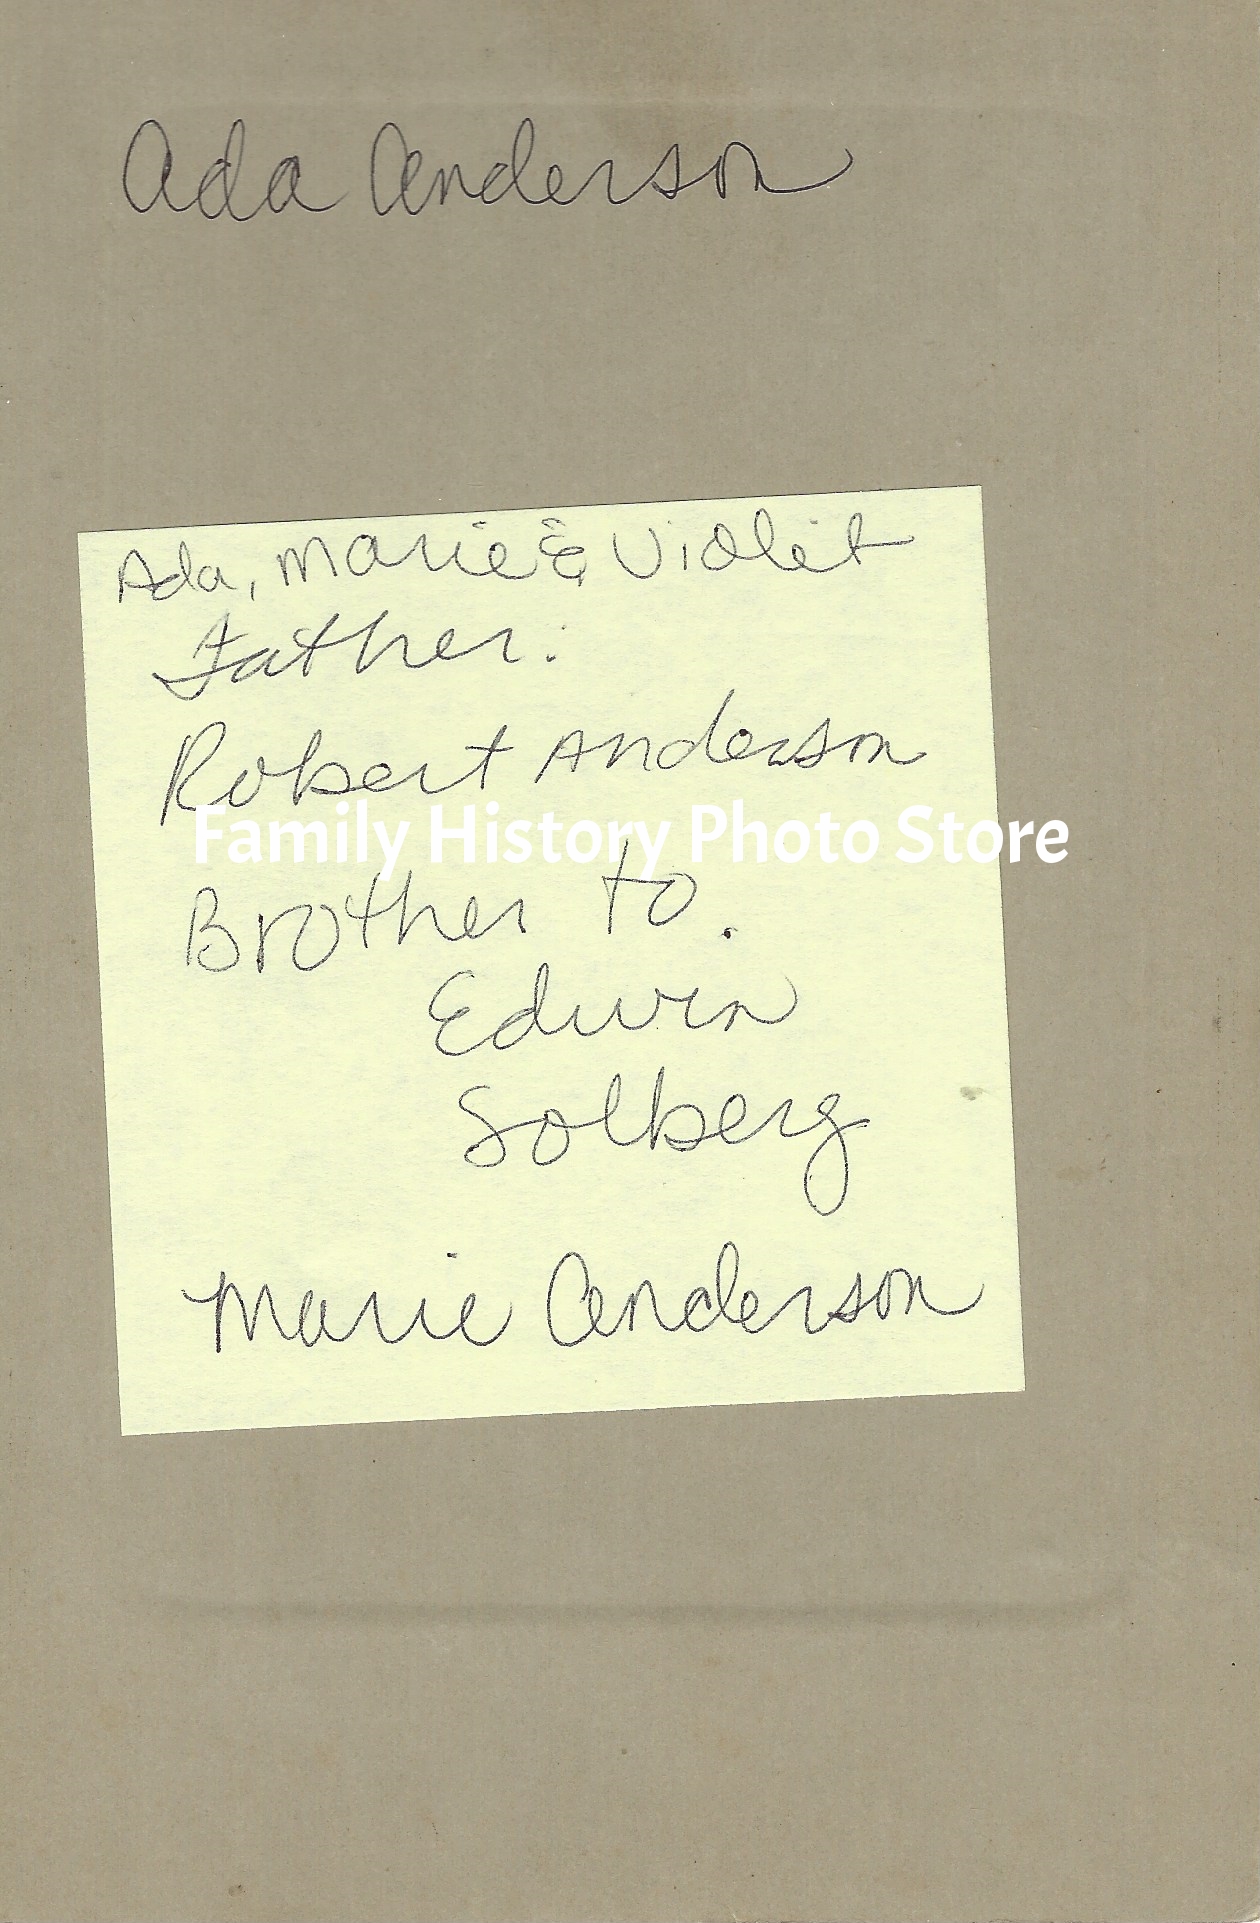 Ada Anderson
Ada, Marie & Violet
Father:
Robert Anderson
Family History Photo Store
Brother to.
Edwin
Solberg
Marie Anderson